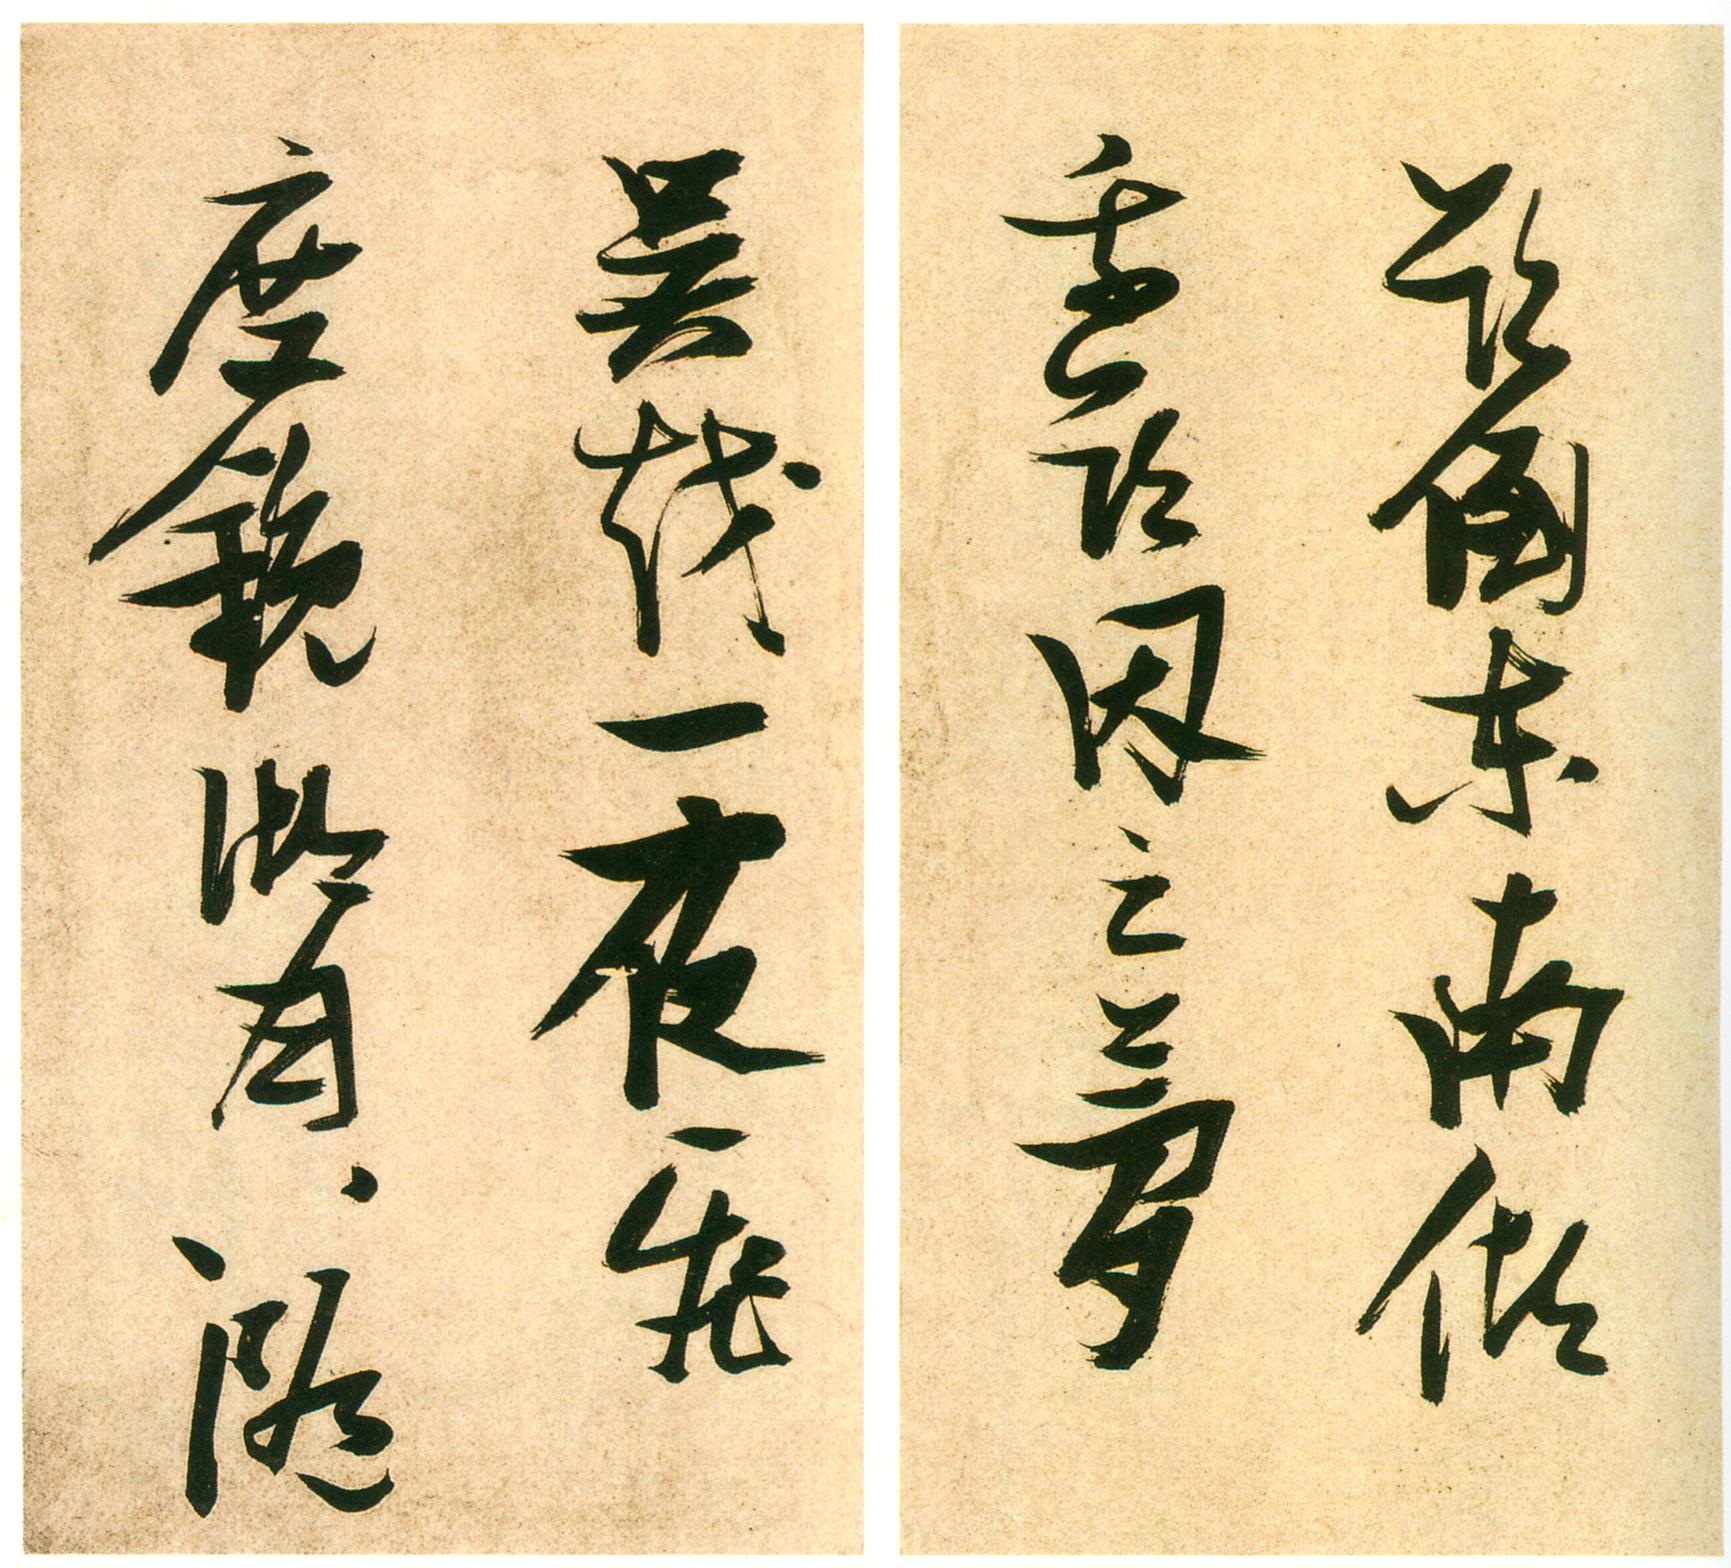 欲倒東南傾
我欲因之夢
吳越一夜飛
度鏡湖月、、照